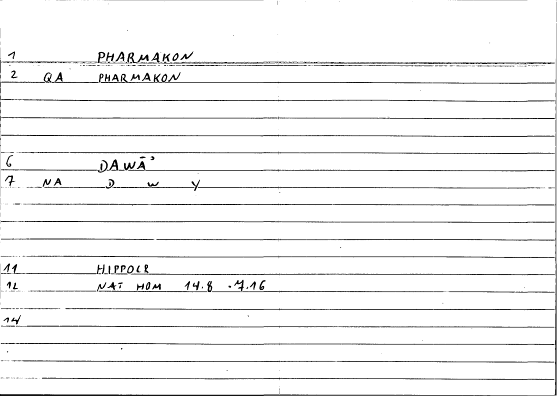 1 PHARMAKON
2 QA PHARMAKON
6 DAWĀʾ
7 NA D W Y
11 HIPPOCR
12 NAT HOM 14.8 - 7.16
14